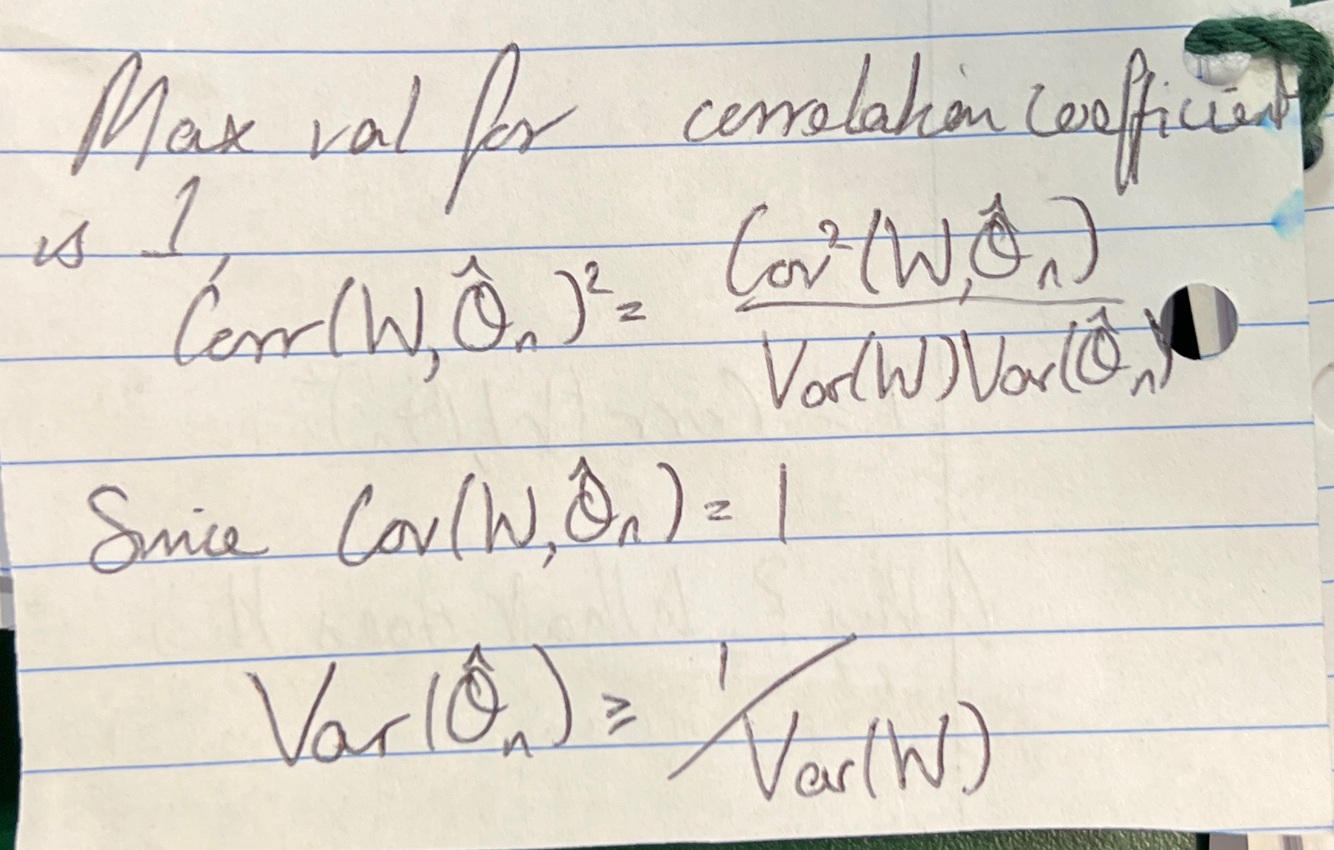 Max val for correlation coefficient
is 1,
Corr(W, θ̂ₙ)² = Cov²(W, θ̂ₙ) / Var(W)Var(θ̂ₙ)
Since Cov(W, θ̂ₙ) = 1
Var(θ̂ₙ) ≥ 1/Var(W)